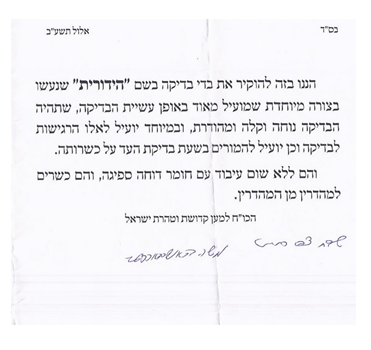 בס"ד
אלול תשע"ב
הננו בזה להוקיר את בדי בדיקה בשם "הידורית" שנעשו
בצורה מיוחדת שמועיל מאוד באופן עשיית הבדיקה, שתהיה
הבדיקה נוחה וקלה ומהודרת, ובמיוחד יועיל לאלו הרגישות
לבדיקה וכן יועיל להמורים בשעת בדיקת העד על כשרותה.
והם ללא שום עיבוד עם חומר דוחה ספיגה, והם כשרים
למהדרין מן המהדרין.
הכו"ח למען קדושת וטהרת ישראל